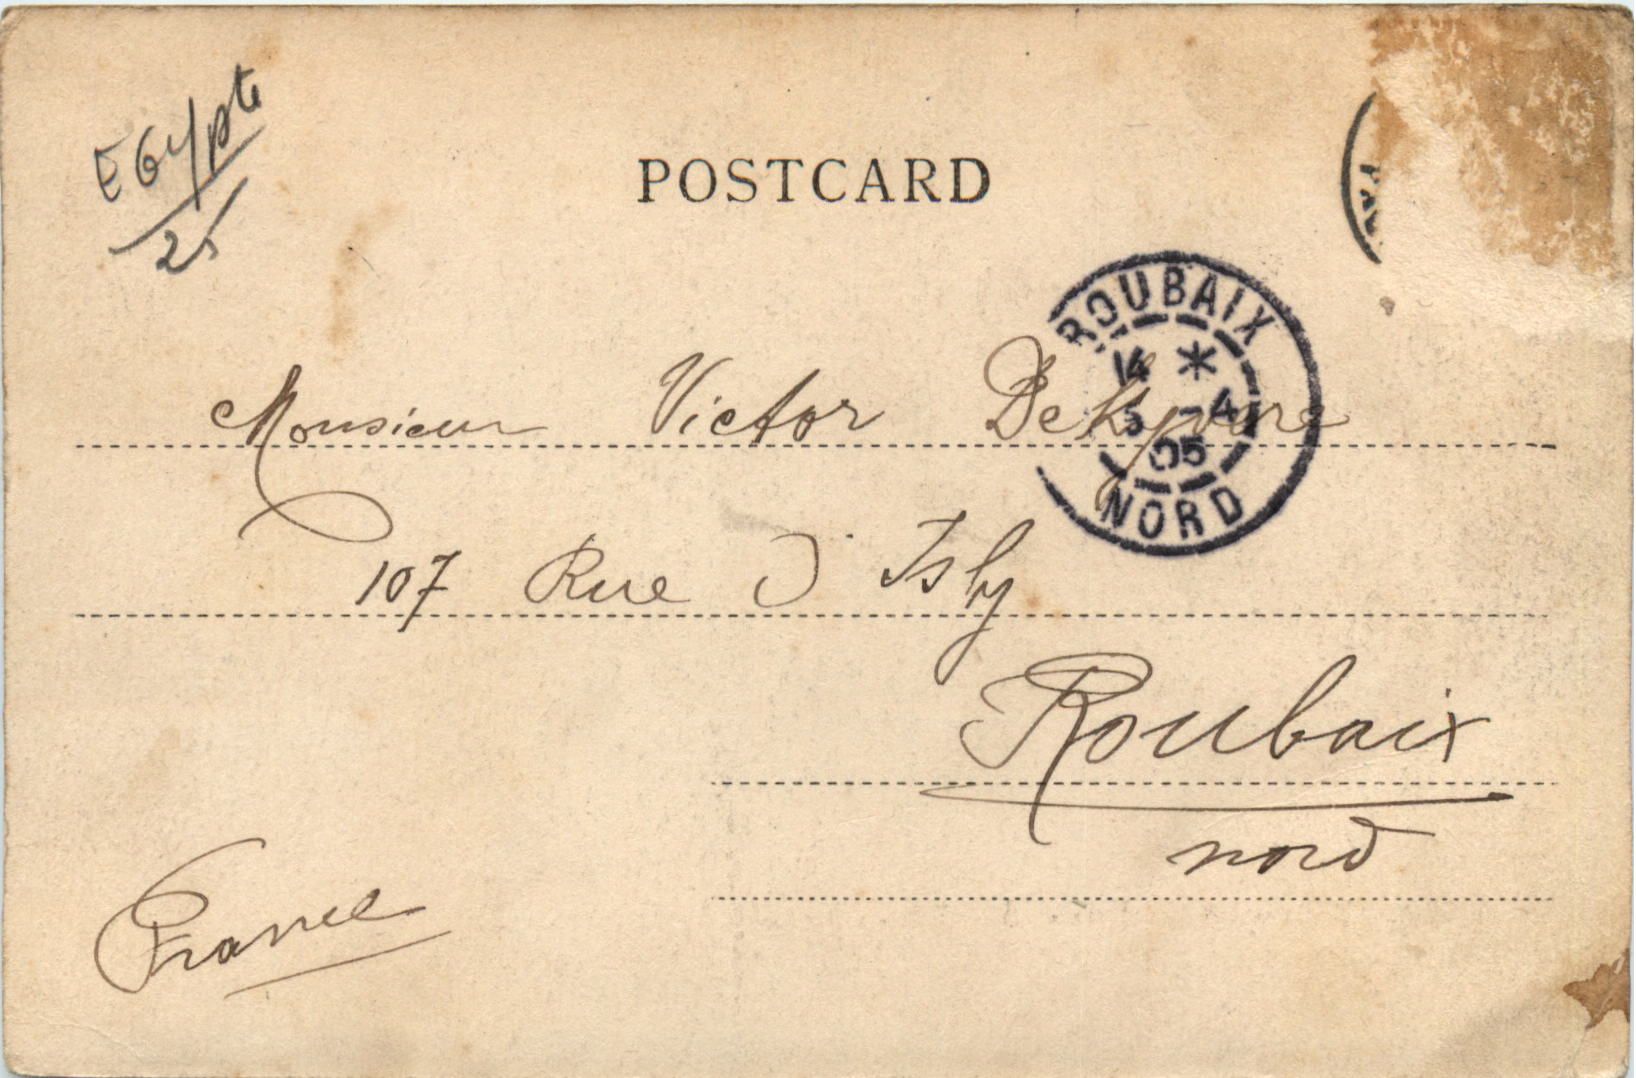 EGypte
25
POSTCARD
ROUBAIX
14 *
5 -4
05
NORD
Monsieur Victor Dekyvere
107 Rue D'Isly
Roubaix
nord
France